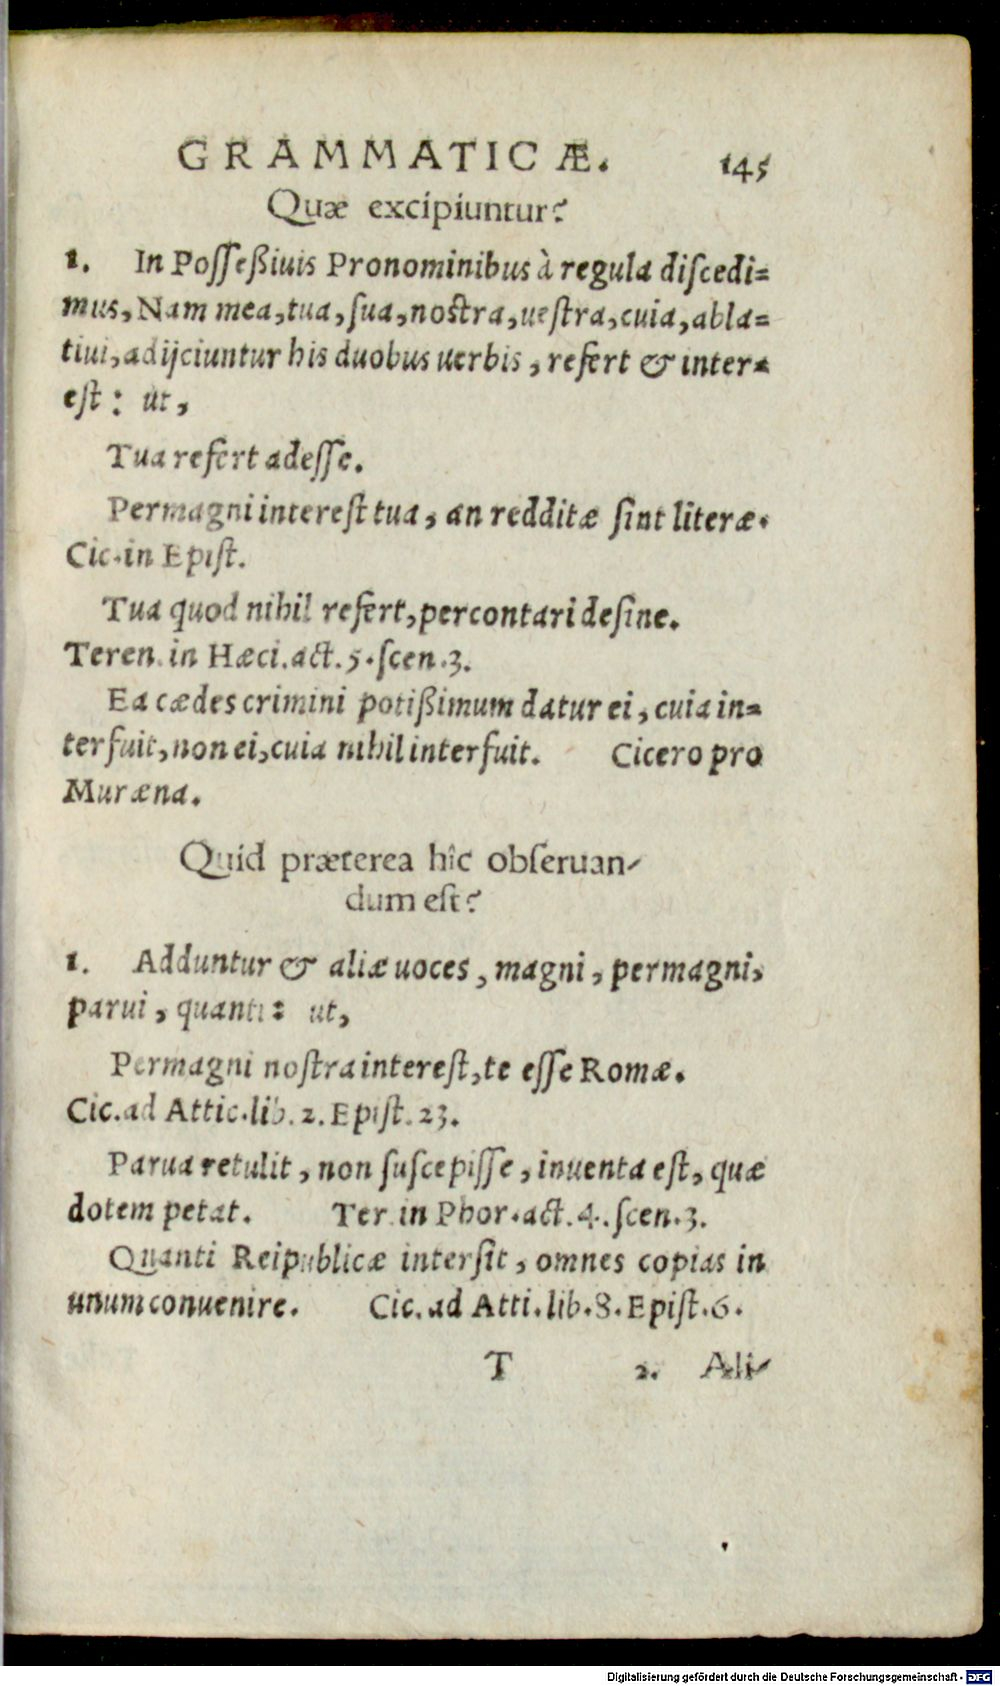 GRAMMATICÆ. 145
Quæ excipiuntur?
1. In Poſſeßiuis Pronominibus à regula diſcedi=
mus, Nam mea, tua, ſua, noſtra, ueſtra, cuia, abla=
tiui, adijciuntur his duobus uerbis, refert & inter=
eſt: ut,
Tua refert adeſſe.
Permagni intereſt tua, an redditæ ſint literæ.
Cic. in Epiſt.
Tua quod nihil refert, percontari deſine.
Teren. in Hæci. act. 5. ſcen. 3.
Ea cædes crimini potißimum datur ei, cuia in=
terfuit, non ei, cuia nihil interfuit. Cicero pro
Muræna.
Quid præterea hîc obſeruan-
dum eſt?
1. Adduntur & aliæ uoces, magni, permagni,
parui, quanti: ut,
Permagni noſtra intereſt, te eſſe Romæ.
Cic. ad Attic. lib. 2. Epiſt. 23.
Parua retulit, non ſuſcepiſſe, inuenta eſt, quæ
dotem petat. Ter. in Phor. act. 4. ſcen. 3.
Quanti Reipublicæ interſit, omnes copias in
unum conuenire. Cic. ad Atti. lib. 8. Epiſt. 6.
T 2. Ali-
Digitalisierung gefördert durch die Deutsche Forschungsgemeinschaft - DFG